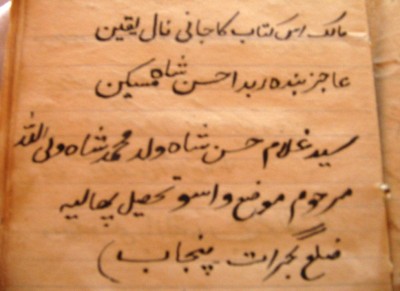 مالک اس کتاب کا جانی نال یقین
عاجز بندہ رب دا حسن شاہ مسکین
سید غلام حسن شاہ ولد محمد شاہ ولی اللہ
مرحوم موضع واسو تحصیل پھالیہ
ضلع گجرات - پنجاب)